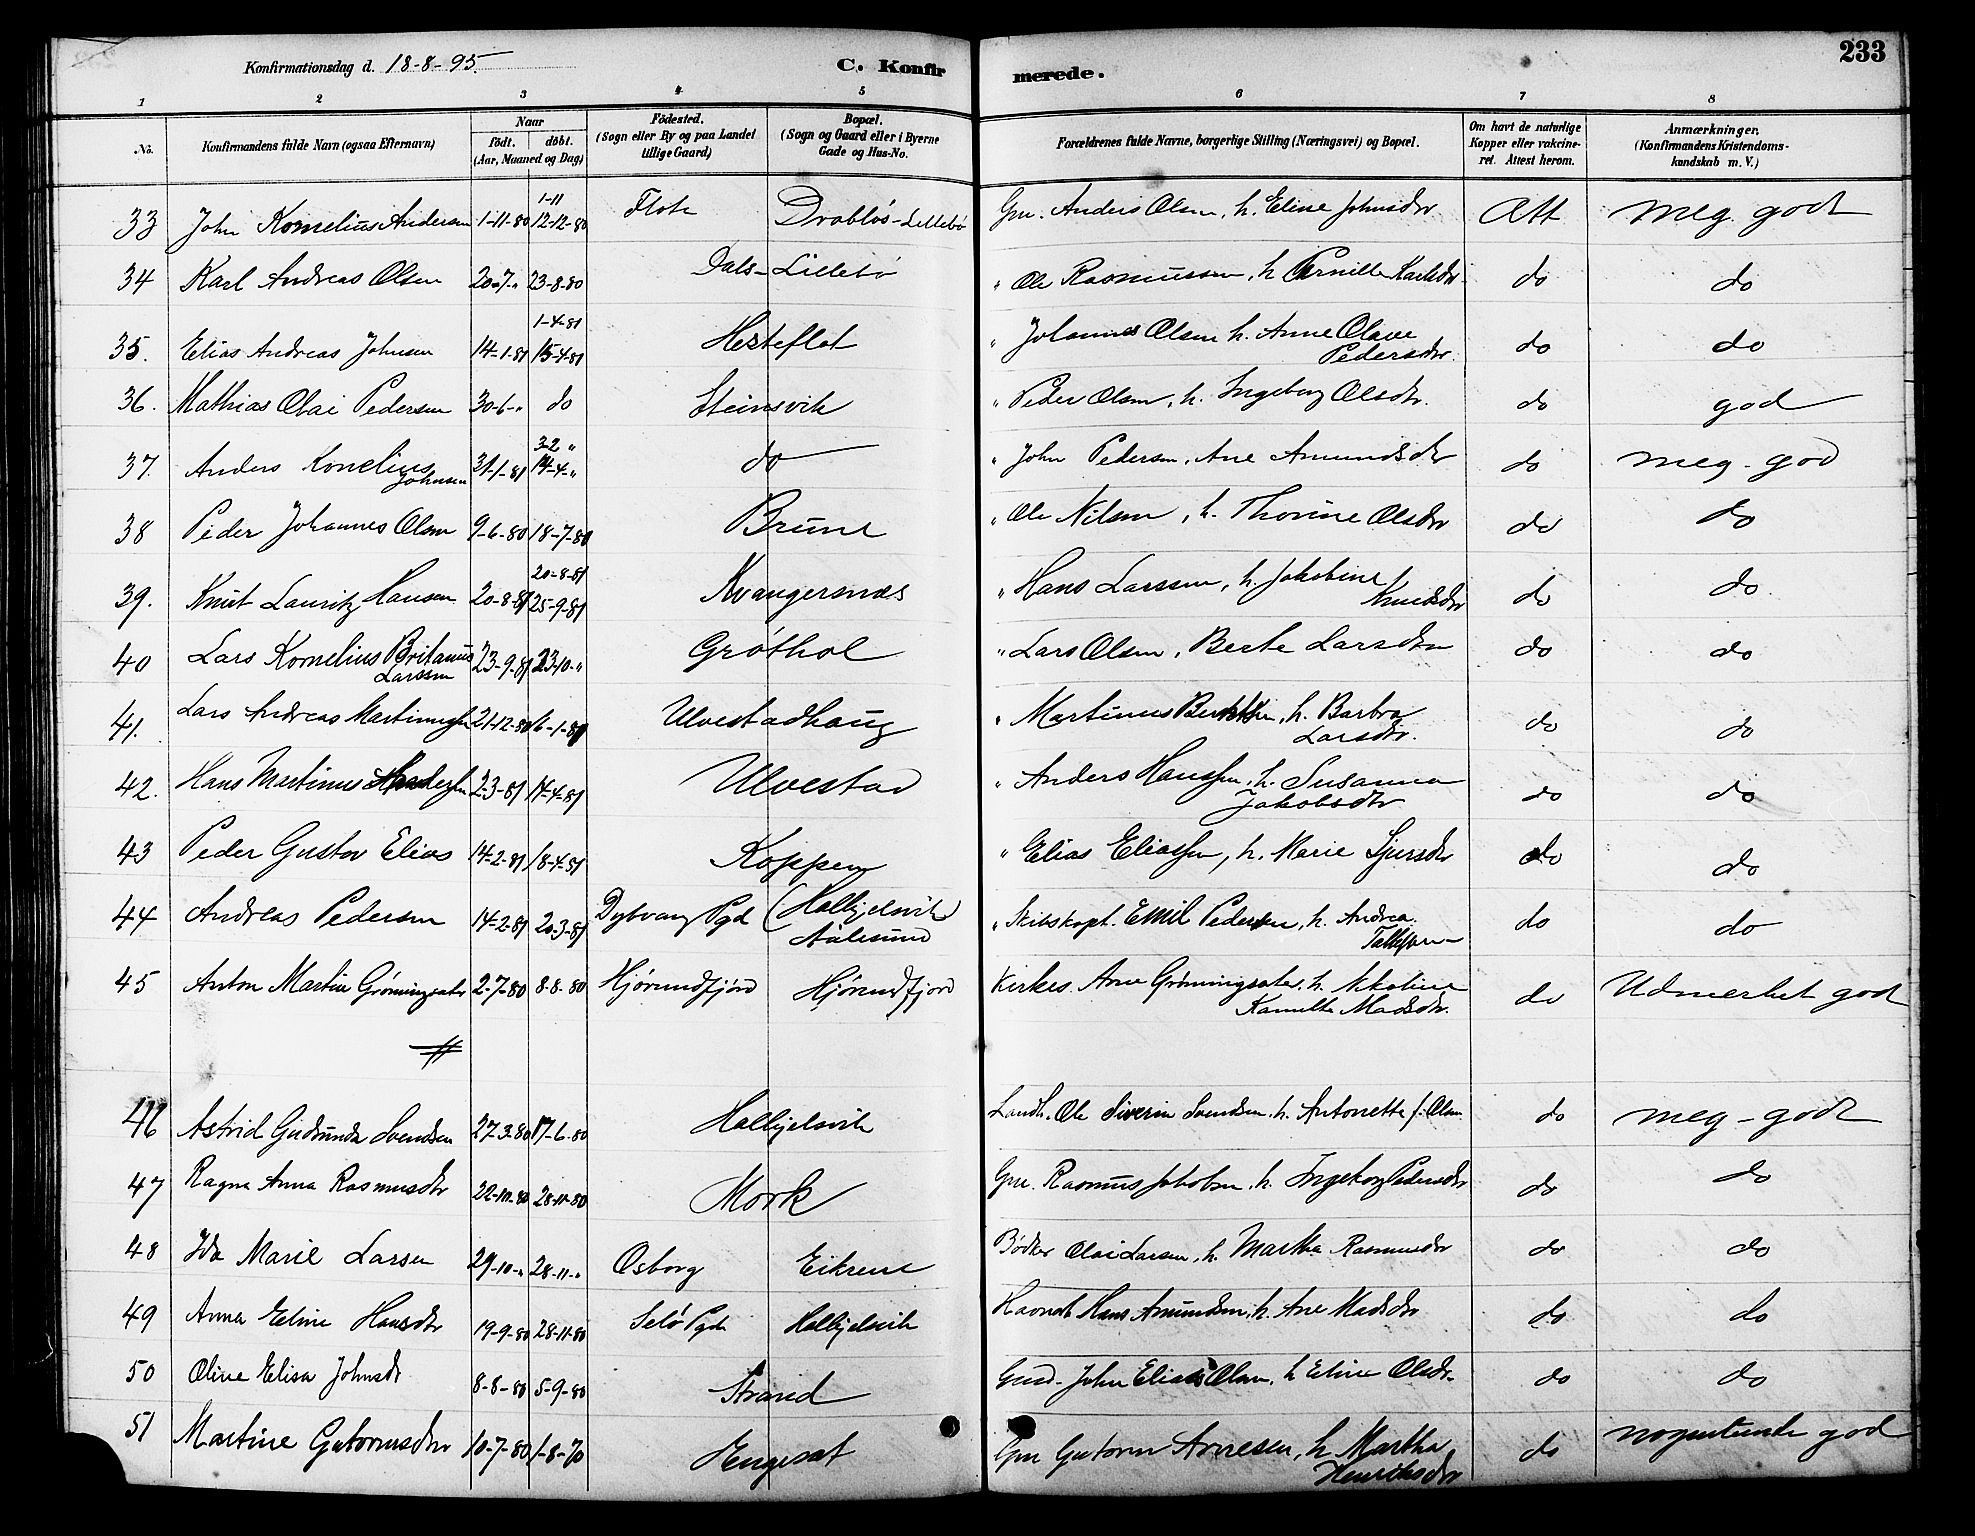 233
Konfirmationsdag d. 18-8-95.
C. Konfirmerede.
1 2 3 4 5 6 7 8
No.
Konfirmandens fulde Navn (ogsaa Efternavn)
Naar
födt. döbt.
(Aar, Maaned og Dag)
Födested.
(Sogn eller By og paa Landet tillige Gaard)
Bopæl.
(Sogn og Gaard eller i Byerne Gade og Hus-No.
Forældrenes fulde Navne, borgerlige Stilling (Næringsvei) og Bopæl.
Om havt de naturlige Kopper eller vakcineret. Attest herom.
Anmærkninger.
(Konfirmandens Kristendomskundskab m. V.)
33 John Kornelius Andersen 1-11-80 1-11 12-12-80 Flote Drabløs-Lillebø Gm. Anders Olsen, h. Eline Johnsdtr. Att meg. godt
34 Karl Andreas Olsen 20-7-" 23-8-80 Dals-Lillebø " Ole Rasmussen, h. Pernille Karlsdtr. do do
35. Elias Andreas Johnsen 14-1-81 1-4-81 15-4-81 Hesteflot " Johannes Olsen h. Anne Olave Pedersdtr. do do
36. Mathias Olai Pedersen 30-6-" do Steinsvik " Peder Olsen, h. Ingeborg Olsdtr. do god
37. Anders Kornelius Johnsen 31-1-81 3-2 " 14-4-" do " John Pedersen, Ane Amundsdtr do meg-god
38 Peder Johannes Olsen 9-6-80 18-7-80 Brune " Ole Nilsen, h. Thorine Olsdtr do do
39. Knut Lauritz Hansen 20-8-81 20-8-81 25-9-81 Kvangersnæs " Hans Larssen, h. Jakobine Knudsdtr do do.
40 Lars Kornelius Britanus Larssen 23-9-81 23-10-" Grøthol " Lars Olsen, Berte Larsdtr do do
41. Lars Andreas Martinussen 21-12-80 6-1-81 Ulvestadhaug " Martinus h. Barbra Larsdtr. do do
42. Hans Martinus 2-3-81 14-4-81 Ulvestad " Anders Hanssen, h. Susanna Jakobsdtr do do
43 Peder Gustav Elias 14-2-81 18-4-81 Koppen " Elias Eliassen, h. Marie Sjursdtr do do
44 Andreas Pedersen 14-2-81 20-3-81 Dybvaag Pgd (Halkjelsvik) Aalesund " Skibskapt. Emil Pedersen, h. Andrea do do
45 Anton Martin Grøningsæter 2-7-80 8-8-80 Hjørundfjord Hjørundfjord Kirkes. Arne Grøningsæter, h. Nikoline Kamilla Madsdtr. do Udmerket god
46 Astrid Gudrunda Svendsen 27-3-80 17-6-80 Halkjelsvik Landh. Ole Siverin Svendsen. h. Antonette f. Olsen do meg-godt
47 Ragna Anna Rasmusdtr 22-10-80 28-11-80 Mork Gm. Rasmus Jakobsen, h. Ingeborg Pedersdtr do do
48 Ida Marie Larsen 29-10-" 28-11-" Osborg Eikrem Bødker Olai Larsen, h. Martha Rasmusdtr do do
49 Anna Eline Hansdtr 19-9-80 28-11-80 Selø Pgd Halkjelsvik Hans Amundsen, h. Ane Madsdtr do do
50 Oline Elisa Johnsdtr 8-8-80 5-9-80 Strand John Elias Olsen, h Eline Olsdtr. do do
51 Martine Gutormsdtr 10-7-80 1-8-70 Hengesæt Gm Gutorm Arnesen, h. Martha Henriksdtr do nogenlunde god